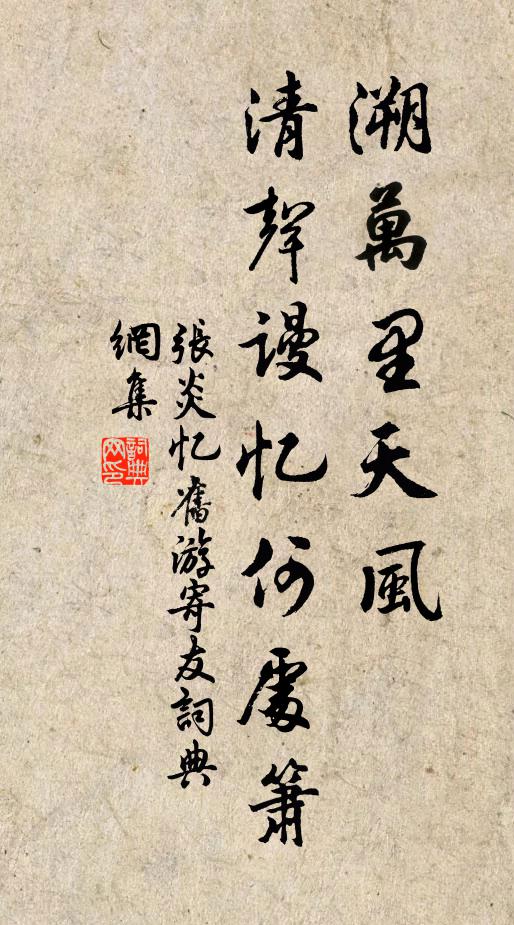 溯萬里天風
清聲謾忆何處簫
張炎忆舊游寄友詞典
網集
詞典網印